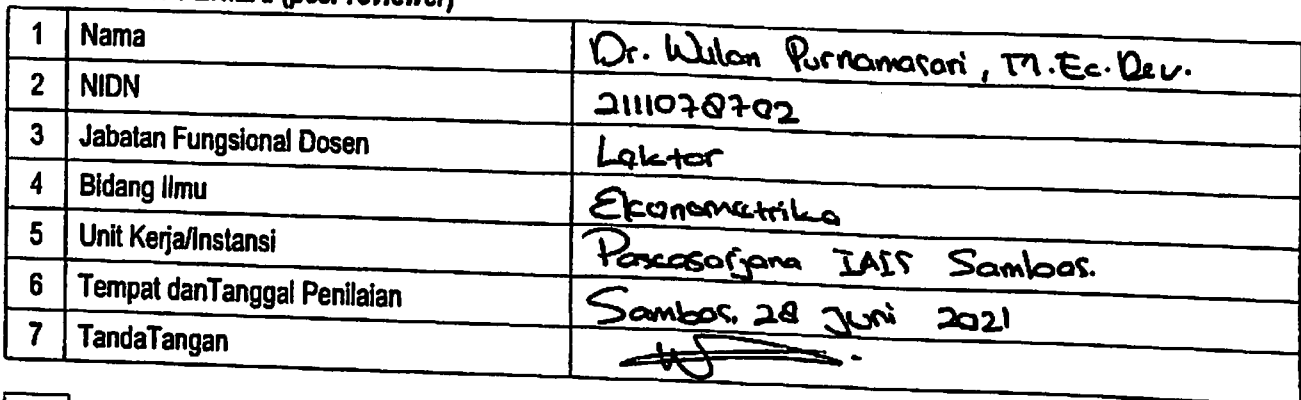 (peer reviewer)
1 Nama Dr. Wulan Purnamasari, M.Ec.Dev.
2 NIDN 2111078702
3 Jabatan Fungsional Dosen Lektor
4 Bidang Ilmu Ekonometrika
5 Unit Kerja/Instansi Pascasarjana IAIS Sambas.
6 Tempat danTanggal Penilaian Sambas, 28 Juni 2021
7 TandaTangan